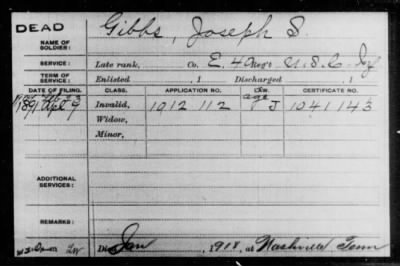 DEAD
NAME OF SOLDIER: Gibbs, Joseph S.
SERVICE: Late rank, Co. E, 40 Reg't U.S.C. Inf
TERM OF SERVICE: Enlisted , 1 Discharged , 1
DATE OF FILING. CLASS. APPLICATION NO. CERTIFICATE NO.
1891 Apl 9 Invalid, 1012 112 J 1041143
Widow,
Minor,
ADDITIONAL SERVICES:
REMARKS:
Died Jan , 1918, at Nashville Tenn